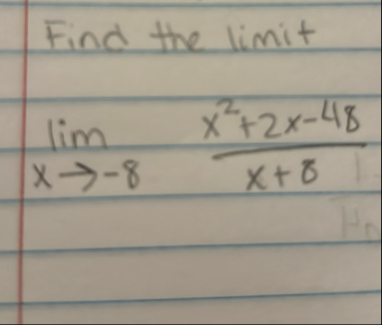 Find the limit
lim x→-8 x²+2x-48 / x+8